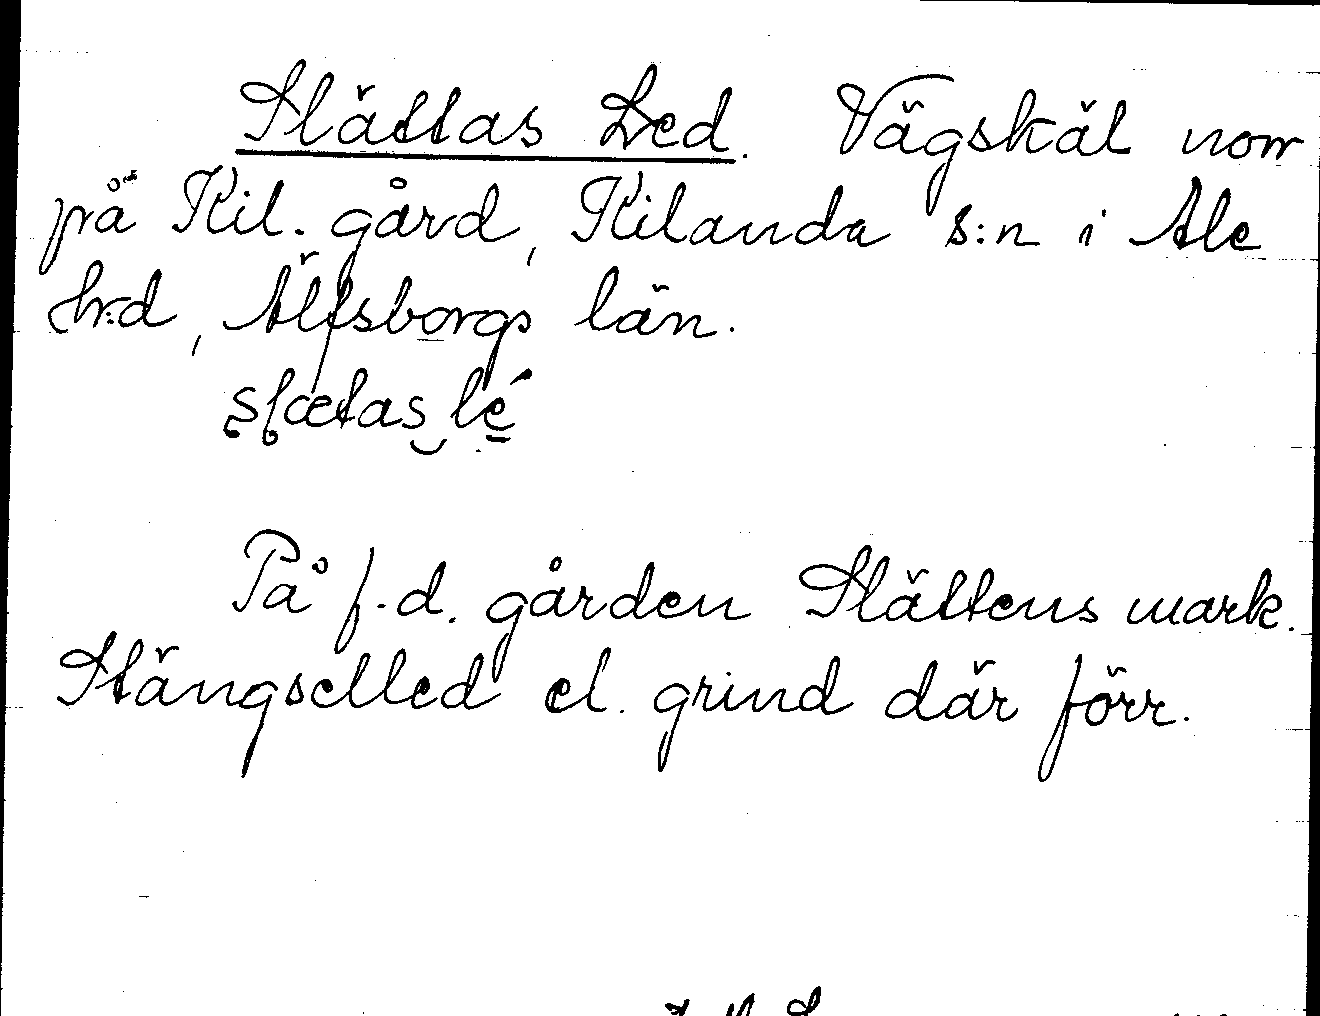 Slättas Led. Vägskäl norr
på Kil. gård, Kilanda s:n i Ale
hr:d, Älfsborgs län.
slætas lé
På f.d. gården Slättens mark.
Stängselled el. grind där förr.